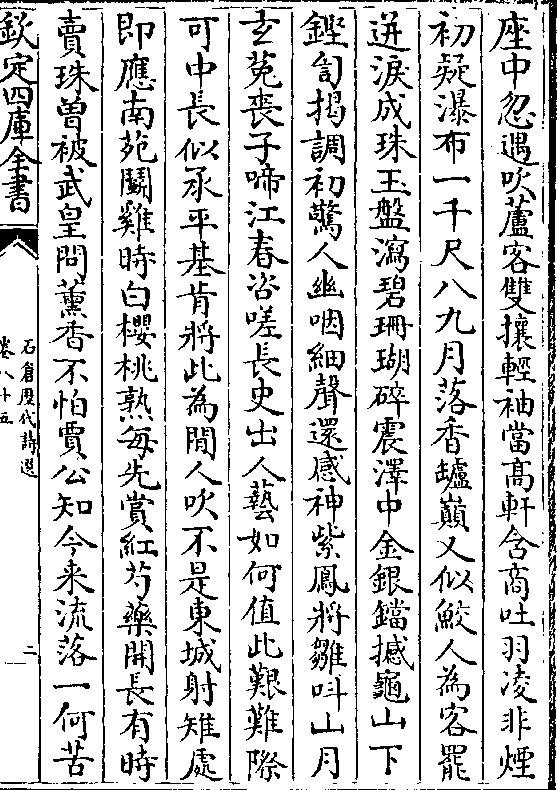 座中忽遇吹蘆客雙攘輕袖當高軒含商吐羽凌非煙
初疑瀑布一千尺八九月落香罏巔又似鮫人為客罷
迸淚成珠玉盤瀉碧珊瑚碎震澤中金銀鐺撼龜山下
鏗訇揭調初驚人幽咽細聲還感神紫鳳將雛呌山月
玄兎喪子啼江春咨嗟長史出人藝如何值此艱難際
可中長似承平基肯將此為閒人吹不是東城射雉處
即應南苑鬭雞時白櫻桃熟每先賞紅芍藥開長有時
賣珠曽被武皇問薰香不怕賈公知今来流落一何苦
欽定四庫全書
石倉歴代詩選
卷八十五
二